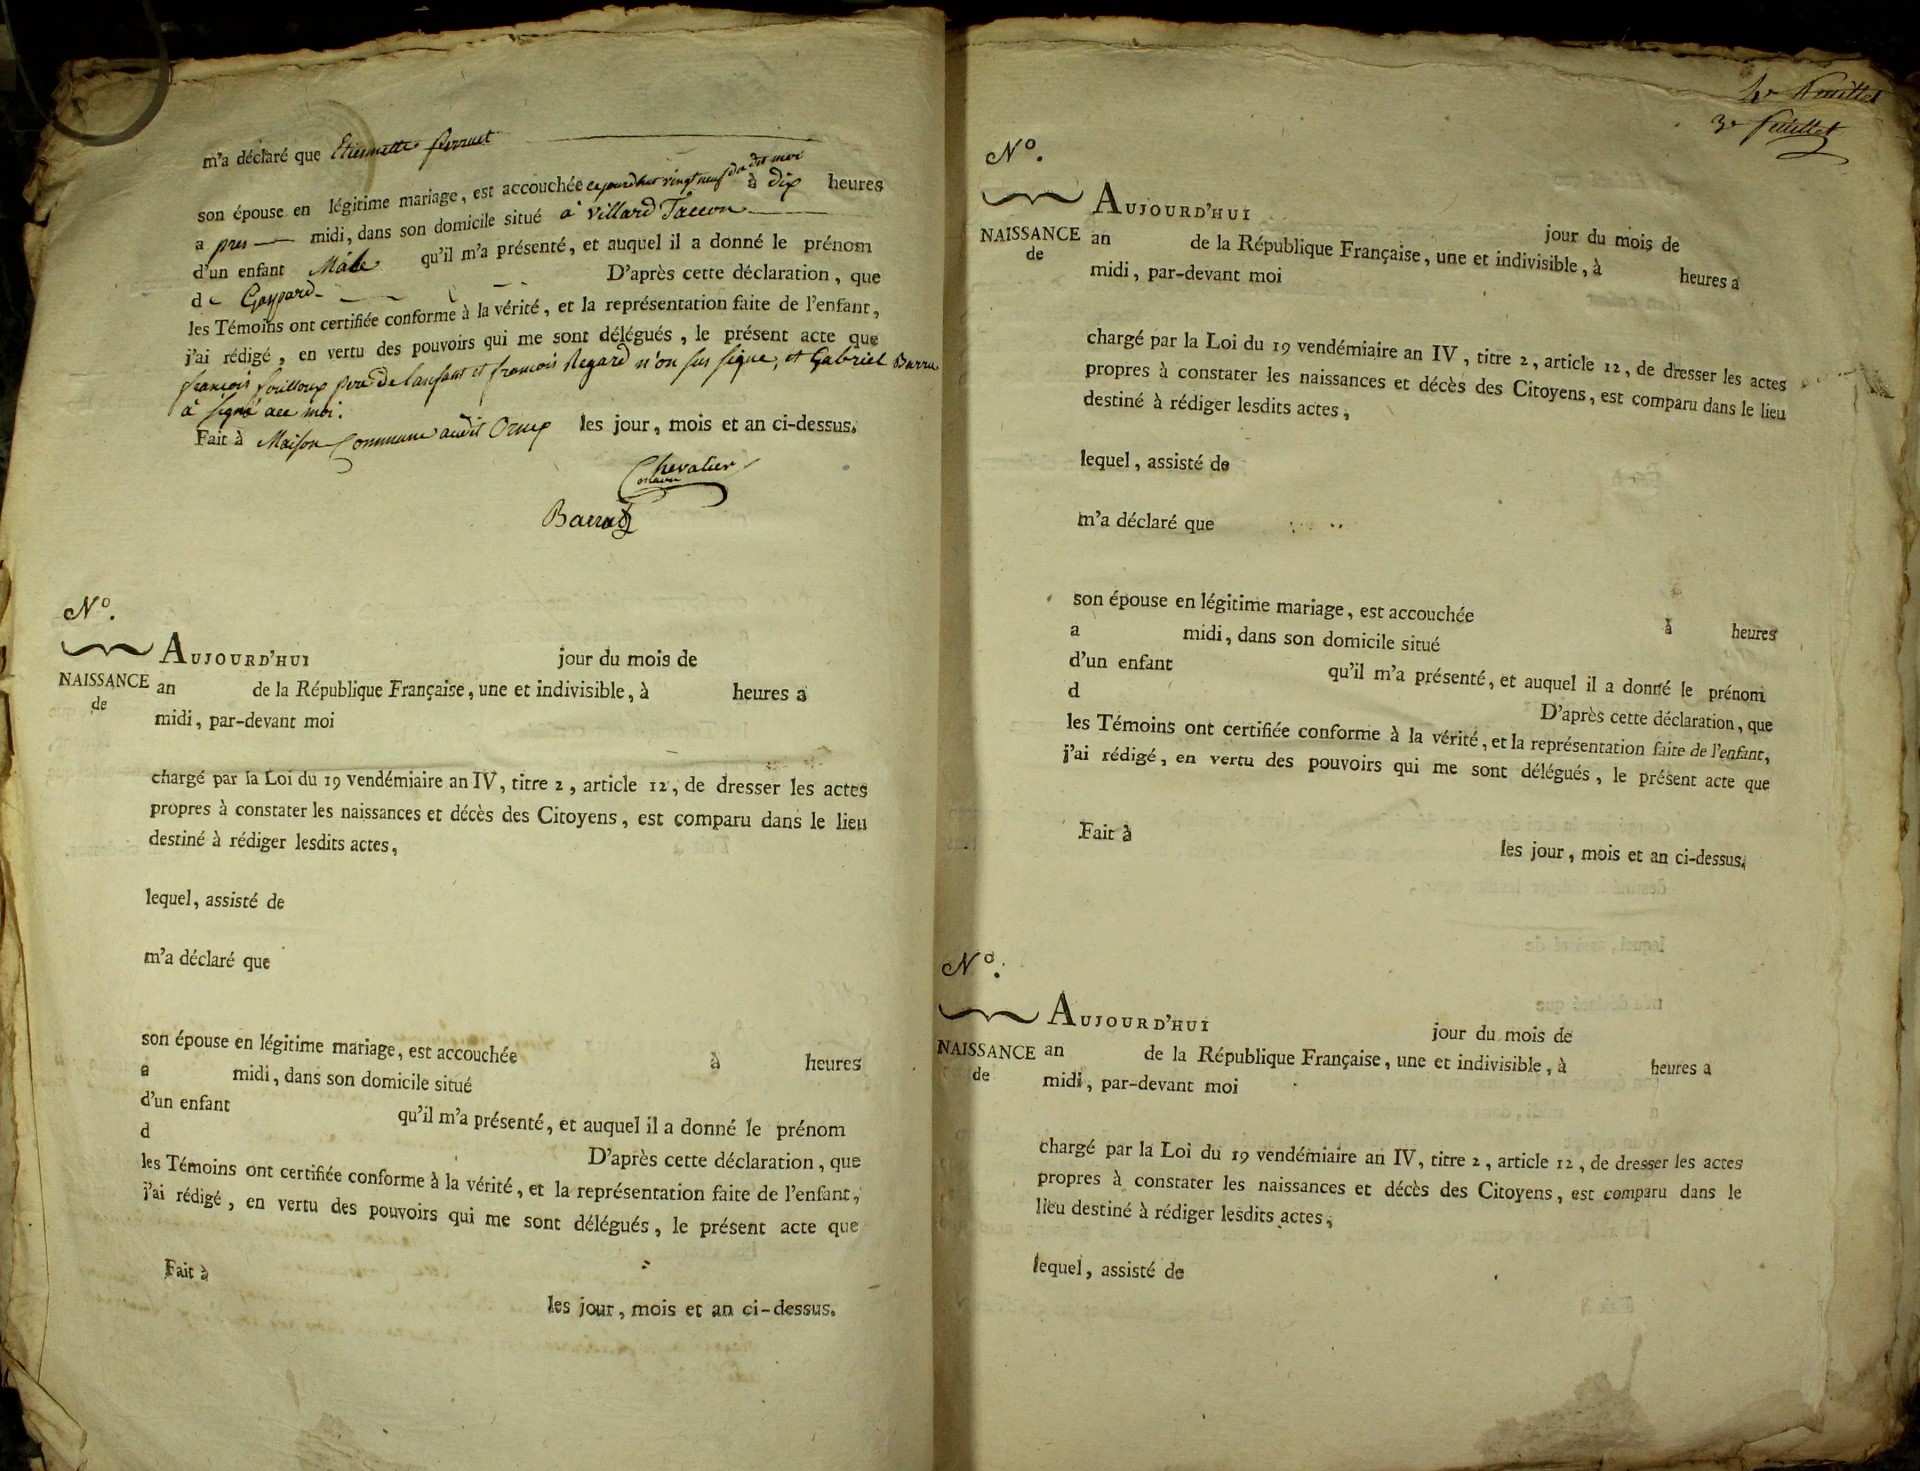 m'a déclaré que Etiennette perruet
son épouse en légitime mariage, est accouchée cejourdhui vingt neuf du dit moi à dix heures
a pres midi, dans son domicile situé à Villard Taccon
d'un enfant Mâle qu'il m'a présenté, et auquel il a donné le prénom
de Gaspard D'après cette déclaration, que
les Témoins ont certifiée conforme à la vérité, et la représentation faite de l'enfant,
j'ai rédigé, en vertu des pouvoirs qui me sont délégués, le présent acte que
françois fouilloux pere de lanfant et francois Regard n'on sus signe, et Gabriel Barra
à signé avec moi.
Fait à Maison Commune audit les jour, mois et an ci-dessus.
Chevalier
Barrat
Nº.
AUJOURD'HUI jour du mois de
NAISSANCE an de la République Française, une et indivisible, à heures a
de
midi, par-devant moi
chargé par la Loi du 19 vendémiaire an IV, titre 2, article 12, de dresser les actes
propres à constater les naissances et décès des Citoyens, est comparu dans le lieu
destiné à rédiger lesdits actes,
lequel, assisté de
m'a déclaré que
son épouse en légitime mariage, est accouchée à heures
a midi, dans son domicile situé
d'un enfant qu'il m'a présenté, et auquel il a donné le prénom
d D'après cette déclaration, que
les Témoins ont certifiée conforme à la vérité, et la représentation faite de l'enfant,
j'ai rédigé, en vertu des pouvoirs qui me sont délégués, le présent acte que
Fait à
les jour, mois et an ci-dessus.
4e feuillet
3e feuillet
Nº.
AUJOURD'HUI jour du mois de
NAISSANCE an de la République Française, une et indivisible, à heures a
de
midi, par-devant moi
chargé par la Loi du 19 vendémiaire an IV, titre 2, article 12, de dresser les actes
propres à constater les naissances et décès des Citoyens, est comparu dans le lieu
destiné à rédiger lesdits actes,
lequel, assisté de
m'a déclaré que
son épouse en légitime mariage, est accouchée à heures
a midi, dans son domicile situé
d'un enfant qu'il m'a présenté, et auquel il a donné le prénom
d D'après cette déclaration, que
les Témoins ont certifiée conforme à la vérité, et la représentation faite de l'enfant,
j'ai rédigé, en vertu des pouvoirs qui me sont délégués, le présent acte que
Fait à
les jour, mois et an ci-dessus.
Nº.
AUJOURD'HUI jour du mois de
NAISSANCE an de la République Française, une et indivisible, à heures a
de
midi, par-devant moi
chargé par la Loi du 19 vendémiaire an IV, titre 2, article 12, de dresser les actes
propres à constater les naissances et décès des Citoyens, est comparu dans le
lieu destiné à rédiger lesdits actes,
lequel, assisté de